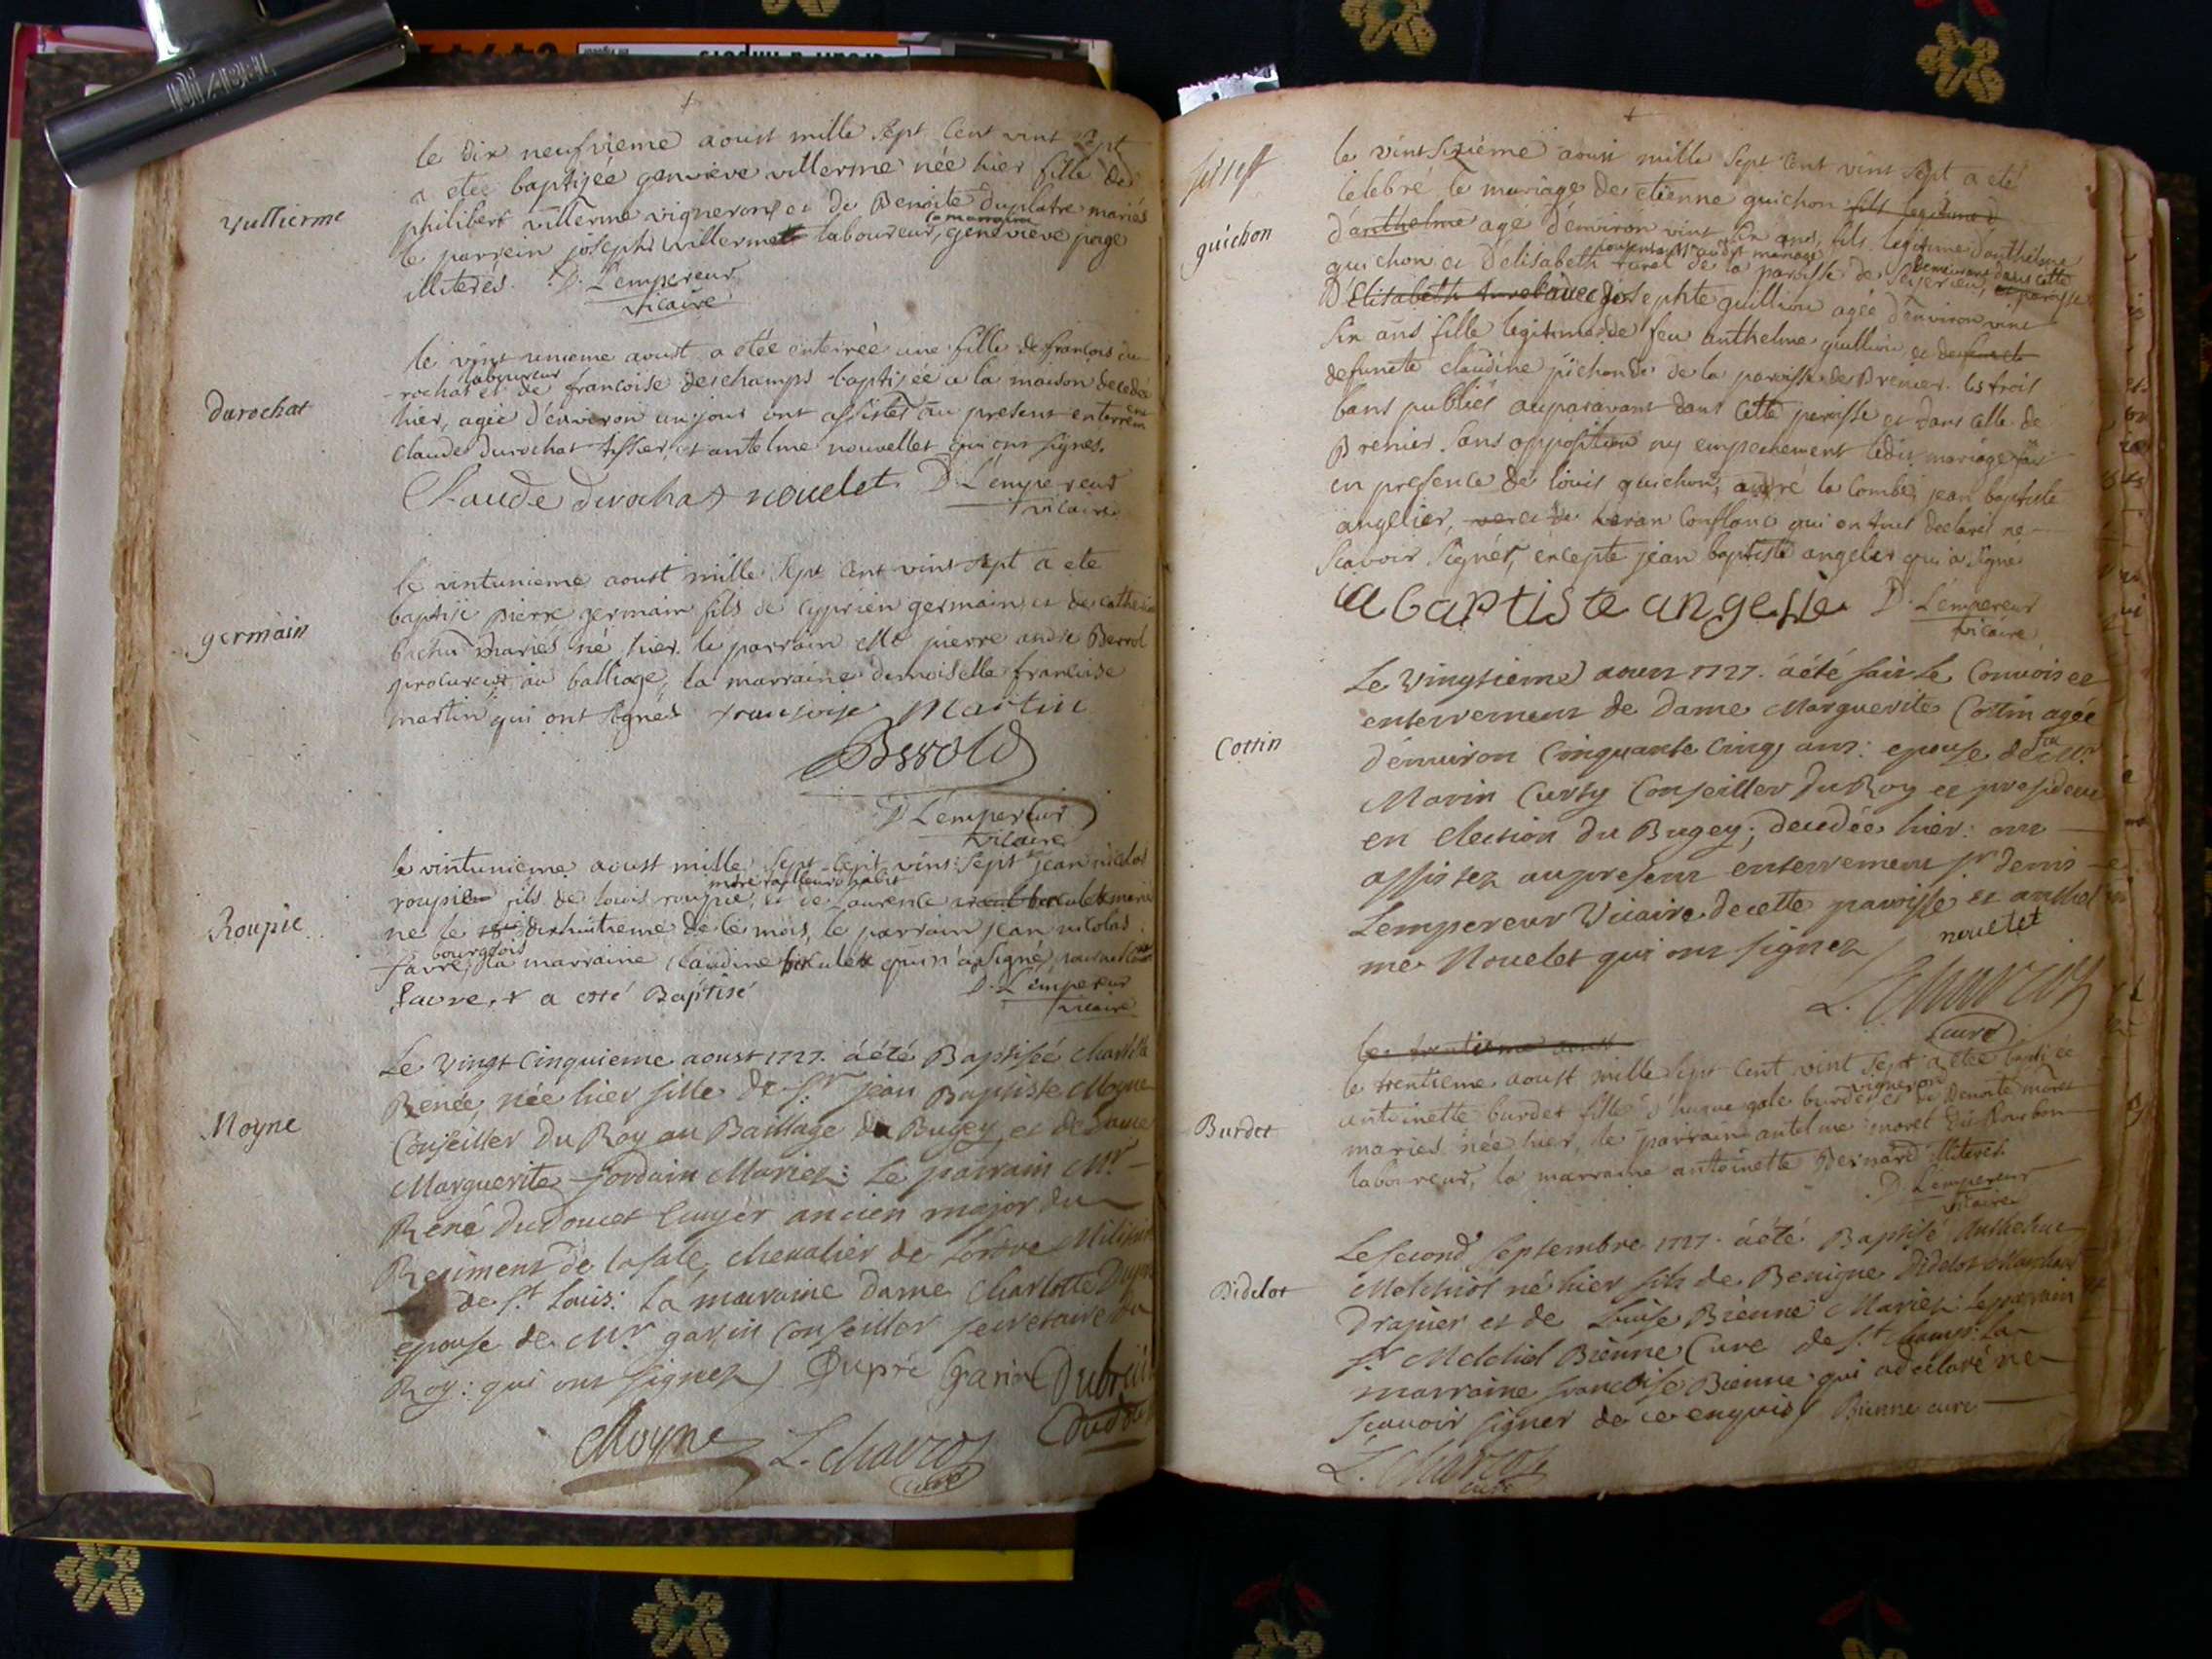 le dix neufvieme aoust mille sept cent vint sept
a etée baptisée genvieve villerme née hier fille de
Vullierme
philibert villerme vigneron et de Benoite duplatre mariés
la marraine
le parrein joseph villerme laboureur, genevieve page
illiterés. D. Lempereur
vicaire
le vint unieme aoust a etée enterrée une fille de françois du
laboureur
rochat et de francoise deschamps baptisée a la maison decedée
Durochat
hier, agée d'environ un jour ont assistés au present enterrem
ent
claude durochat tissier, et antelme nouvellet qui ont signes.
Claude durochat nouelet D. Lempereur
vicaire
le vintunieme aoust mille sept cent vint sept a ete
baptise pierre germain fils de cyprien germain et de catherine
germain
bochu mariés né hier. le parrain Me pierre andre Berrod
procureur au balliage, la marraine demoiselle francoise
martin qui ont signes francoise Martin
Berrod
D Lempereur
vicaire
le vintunieme aoust mille sept cent vint sept jean nicolas
mtre tailleur d'habit
roupie fils de louis roupie, et de Laurence
Roupie
ne le dixhuitieme de ce mois, le parrain jean nicolas
bourgeois
favre, la marraine claudine qui n'a signé,
favre, & a esté Baptisé D. Lempereur
vicaire
Le vingt cinquieme aoust 1727. a été Baptisée charlotte
Renée née hier fille de Sr. jean Baptiste Moyne
Moyne
Conseiller Du Roy au Baillage du Bugey et de Dame
Marguerite jordain Mariez: Le parrain Mr
René dudoucet Ecuyer ancien major du
Regiment de la sale, chevalier de Lordre Militaire
de St. Louis: la marraine Dame Charlotte Dupré
epouse de Mr. garin Conseiller secretaire du
Roy: qui ont signez Dupré Garin Dubreüil
Moyne L. Charcot
curé
le vintsixiéme aoust mille sept cent vint sept a eté
celebré le mariage de etienne guichon fils legitime d
guichon
d'anthelme agé d'environ vint six ans, fils legitime d'anthelme
consentants audit mariage
guichon et d'elisabeth turel de la paroisse de Seyzerieu,
demeurant dans cette
paroisse
D'Elisabeth turel avec Josephte guillion agée d'environ vint
six ans fille legitime de feu anthelme guillion et defuncte
defuncte claudine pichond de la paroisse de Brenier. les trois
bans publiés auparavant dans cette paroisse et dans celle de
Brenier. sans opposition ny empechement ledit mariage fait
en presence de louis guichon, andré la combe, jean baptiste
angelier, veran conflans qui ont tous declarés ne
scavoir signer, excepte jean baptiste angelier qui a signé
a baptiste angelie D. Lempereur
vicaire
Le Vingtieme aoust 1727. a été fait le Convois et
enterrement de Dame Marguerite Cottin agée
Cottin
d'environ Cinquante Cinq ans: epouse de feu Mr.
Marin Cursy Conseiller Du Roy et president
en election du Bugey; decedée hier: ont
assistez au present enterrement Sr. denis
Lempereur Vicaire de cette paroisse et anthel
me Nouelet qui ont signez nouelet
L. Charcot
Curé
le trentieme aoust
le trentieme aoust mille sept cent vint sept a etée baptisée
vigneron
antoinette burdet fille d'hugue gale burdet et de Benoite moret
Burdet
mariés née hier, le parrain antelme moret du Rourbon
laboureur, la marraine antoinette Bernard illiterés.
D. Lempereur
vicaire
Le second septembre 1727. a été Baptisé Anthelme
Melchiol né hier fils de Benigne Didelot Marchand
Didelot
Drapier et de Louise Bienne Mariez: Le parrain
Sr. Melchiol Bienne Cure de St. champ: La
marraine francoise Bienne qui a déclaré ne
scavoir signer de ce enquis Bienne curé
L. Charcot
curé